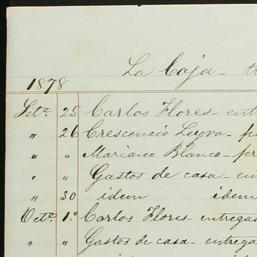 La Caja - tr
1878
Set.e 25 Carlos Flores - ent
" 26 Crescencio Leyva - p
" " Mariano Blanco - pr
" " Gastos de casa - en
" 30 idem idem
Oct.e 1.o Carlos Flores - entregas
" " Gastos de casa - entrega